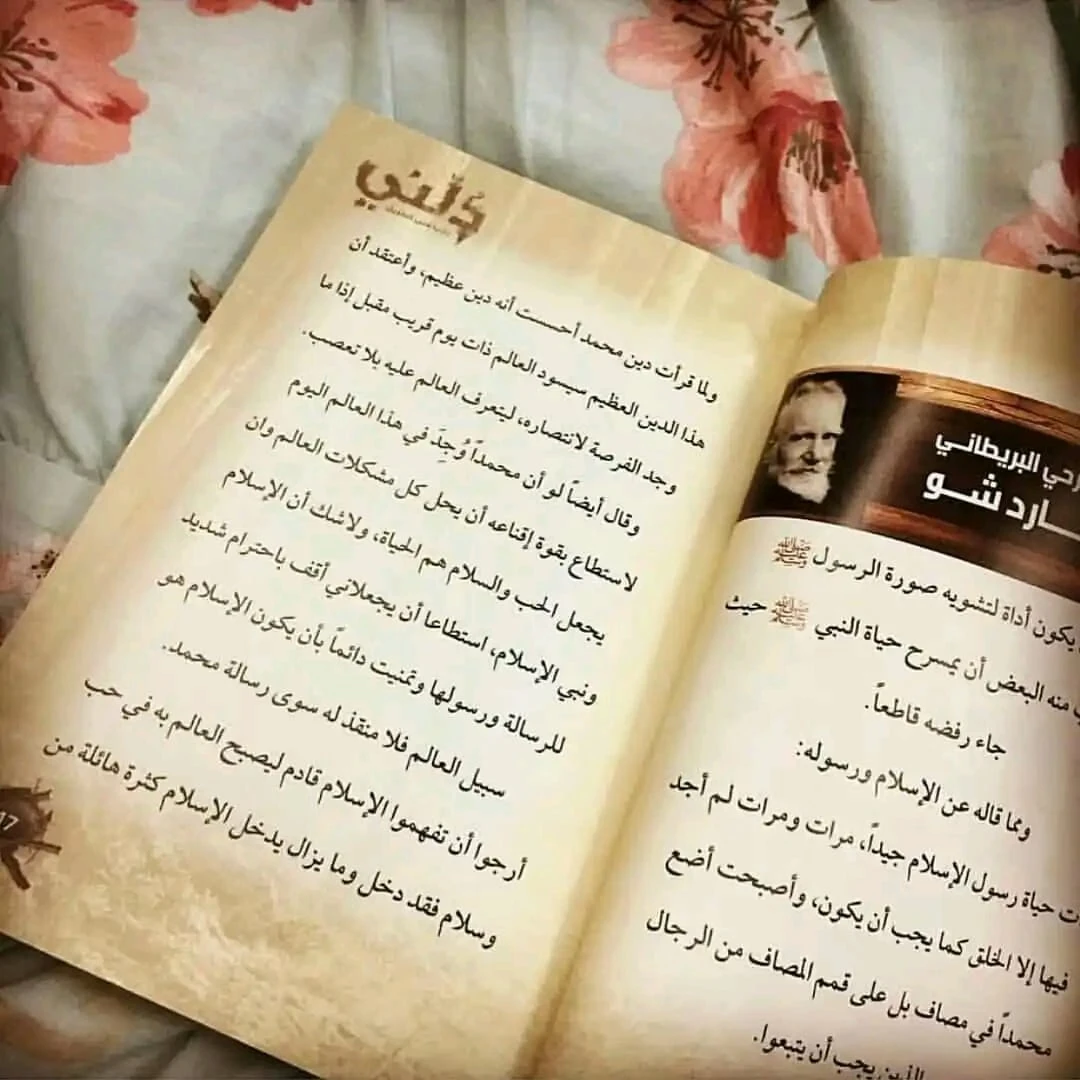 رحي البريطاني
ـارد شـو
يكون أداة لتشويه صورة الرسول ﷺ
منه البعض أن يمسرح حياة النبي ﷺ حيث
جاء رفضه قاطعاً.
ومما قاله عن الإسلام ورسوله:
ت حياة رسول الإسلام جيداً، مرات ومرات لم أجد
فيها إلا الخلق كما يجب أن يكون، وأصبحت أضع
محمداً في مصاف بل على قمم المصاف من الرجال
الذين يجب أن يتبعوا.
دُلَّني
ولما قرأت دين محمد أحسست أنه دين عظيم، وأعتقد أن
هذا الدين العظيم سيسود العالم ذات يوم قريب مقبل إذا ما
وجد الفرصة لانتصاره، ليتعرف العالم عليه بلا تعصب.
وقال أيضاً لو أن محمداً وُجِدَ في هذا العالم اليوم
لاستطاع بقوة إقناعه أن يحل كل مشكلات العالم وان
يجعل الحب والسلام هم الحياة، ولاشك أن الإسلام
ونبي الإسلام، استطاعا أن يجعلاني أقف باحترام شديد
للرسالة ورسولها وتمنيت دائماً بأن يكون الإسلام هو
سبيل العالم فلا منقذ له سوى رسالة محمد.
أرجوا أن تفهموا الإسلام قادم ليصبح العالم به في حب
وسلام فقد دخل وما يزال يدخل الإسلام كثرة هائلة من
17